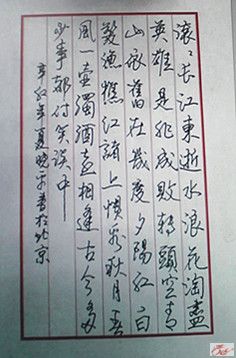 滚々长江東逝水浪花淘盡
英雄是非成敗轉頭空青
山依舊在幾度夕陽紅白
髮漁樵江渚上慣看秋月春
風一壺濁酒喜相逢古今多
少事都付笑談中
辛卯年夏晓平書於北京